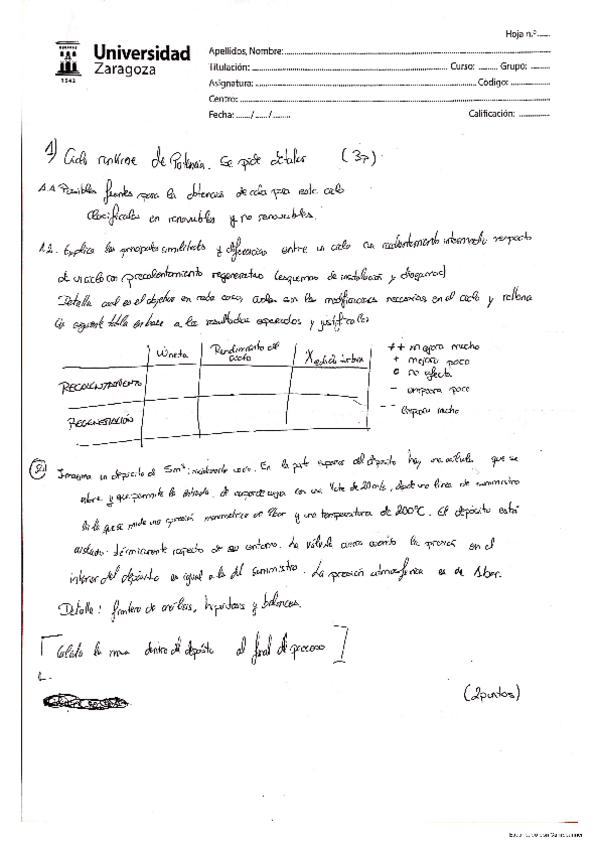 Hoja n.º......
Universidad
Zaragoza
1542
Apellidos, Nombre:
Titulación: Curso: Grupo:
Asignatura: Código:
Centro:
Fecha: ....../....../...... Calificación:
1) Ciclo rankine de Potencia. Se pide detallar (3p)
1.1 Posibles fuentes para la obtención de calor para este ciclo
clasificadas en renovables y no renovables.
1.2. Explica las principales similitudes y diferencias entre un ciclo con recalentamiento intermedio respecto
de un ciclo con precalentamiento regenerativo (esquemas de instalación y diagramas)
Detalla cual es el objetivo en cada caso, cuales son las modificaciones necesarias en el ciclo y rellena
la siguiente tabla en base a los resultados esperados y justifícalos
Wneta Rendimiento del ciclo X salida turbina
RECALENTAMIENTO
REGENERACIÓN
++ mejora mucho
+ mejora poco
0 no afecta
- empeora poco
-- empeora mucho
2) Tenemos un depósito de 5m³ inicialmente vacío. En la parte superior del depósito hay una válvula que se
abre y que permite la entrada de vapor de agua con una de 20 m/s, desde una línea de suministro
en la que se mide una presión manométrica de bar y una temperatura de 200°C. El depósito está
aislado térmicamente respecto de su entorno. La válvula cierra cuando la presión en el
interior del depósito es igual a la del suministro. La presión atmosférica es de 1bar.
Detalle: frontera de análisis, hipótesis y balances.
[Calcula la masa dentro del depósito al final del proceso]
(2puntos)